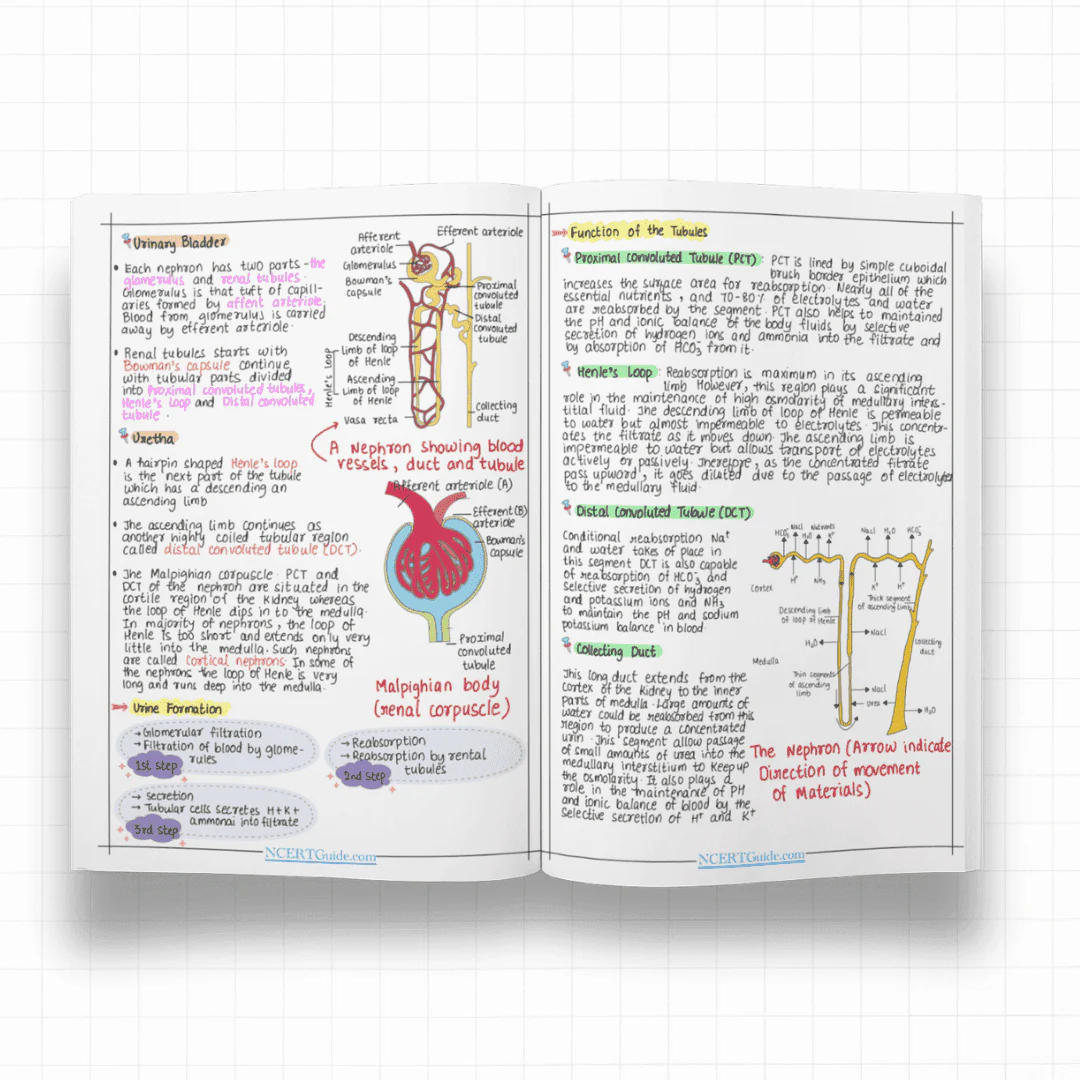 Urinary Bladder
• Each nephron has two parts - the
glamerulus and renal tubules.
Glomerulus is that tuft of capill-
aries formed by affent arteriole.
Blood from glomerulus is carried
away by efferent arteriole.
• Renal tubules starts with
Bowman's capsule continue
with tubular parts divided
into Proximal convoluted tubules,
Henle's Loop and Distal convoluted
tubule.
Uretha
• A tairpin shaped Henle's loop
is the next part of the tubule
which has a descending an
ascending limb
• The ascending limb continues as
another highly coiled tubular region
called distal convoluted tubule (DCT).
• The Malpighian corpuscle. PCT and
DCT of the nephron are situated in the
cortile region of the kidney whereas
the loop of Henle dips in to the medulla.
In majority of nephrons, the loop of
Henle is too short and extends only very
little into the medulla. Such nephrons
are called Cortical nephrons. In some of
the nephrons the loop of Henle is very
long and runs deep into the medulla.
Afferent
arteriole
Efferent arteriole
Glomerulus
Bowman's
capsule
Proximal
convoluted
tubule
Distal
convoluted
tubule
Henle's loop
Descending
limb of loop
of Henle
Ascending
Limb of loop
of Henle
Vasa recta
Collecting
duct
A Nephron showing blood
vessels, duct and tubule
Afferent arteriole (A)
Efferent (B)
arteriole
Bowman's
capsule
Proximal
convoluted
tubule
Malpighian body
(renal corpuscle)
Urine Formation
→ Glomerular filtration
→ Filtration of blood by glome-
rules
1st Step
→ Reabsorption
→ Reabsorption by rental
tubules
2nd Step
→ secretion
→ Tubular cells secretes H+K+
ammonai into filtrate
3rd Step
NCERTGuide.com
Function of the Tubules
Proximal convoluted Tubule (PCT) PCT is lined by simple cuboidal
brush border epithelium which
increases the surface area for reabsorption. Nearly all of the
essential nutrients, and 70-80% of electrolytes and water
are reabsorbed by the segment. PCT also helps to maintained
the pH and ionic balance of the body fluids by selective
secretion of hydrogen ions and ammonia into the filtrate and
by absorption of HCO₃⁻ from it.
Henle's Loop Reabsorption is maximum in its ascending
limb However, this region plays a significant
role in the maintenance of high osmolarity of medullary inters-
titial fluid. The descending limb of loop of Henle is permeable
to water but almost impermeable to electrolytes. This concentr-
ates the filtrate as it moves down. The ascending limb is
impermeable to water but allows transport of electrolytes
actively or passively. Therefore, as the concentrated fitrate
pass upward, it goes diluted due to the passage of electrolytes
to the medullary fluid.
Distal Convoluted Tubule (DCT)
Conditional reabsorption Na⁺
and water takes of place in
this segment DCT is also capable
of reabsorption of HCO₃⁻ and
Selective secretion of hydrogen
and potassium ions and NH₃
to maintain the pH and sodium
potassium balance in blood.
Collecting Duct
This long duct extends from the
cortex of the kidney to the inner
parts of medulla. Large amounts of
water could be reabsorbed from this
region to produce a concentrated
urin. This segment allow passage
of small amounts of urea into the
medullary interstitium to keep up
the osmolarity. It also plays a
role in the maintenance of PH
and ionic balance of blood by the
Selective secretion of H⁺ and K⁺
HCO₃⁻ Nacl H₂O Nutrients K⁺
Nacl H₂O HCO₃⁻
H⁺ NH₃
K⁺ H⁺
Cortex
Thick segment
of ascending limb
Descending limb
of loop of Henle
Nacl
H₂O
collecting
duct
Medulla
Thin segments
of ascending
limb
Nacl
Urea
H₂O
The Nephron (Arrow indicate
Direction of movement
of Materials)
NCERTGuide.com